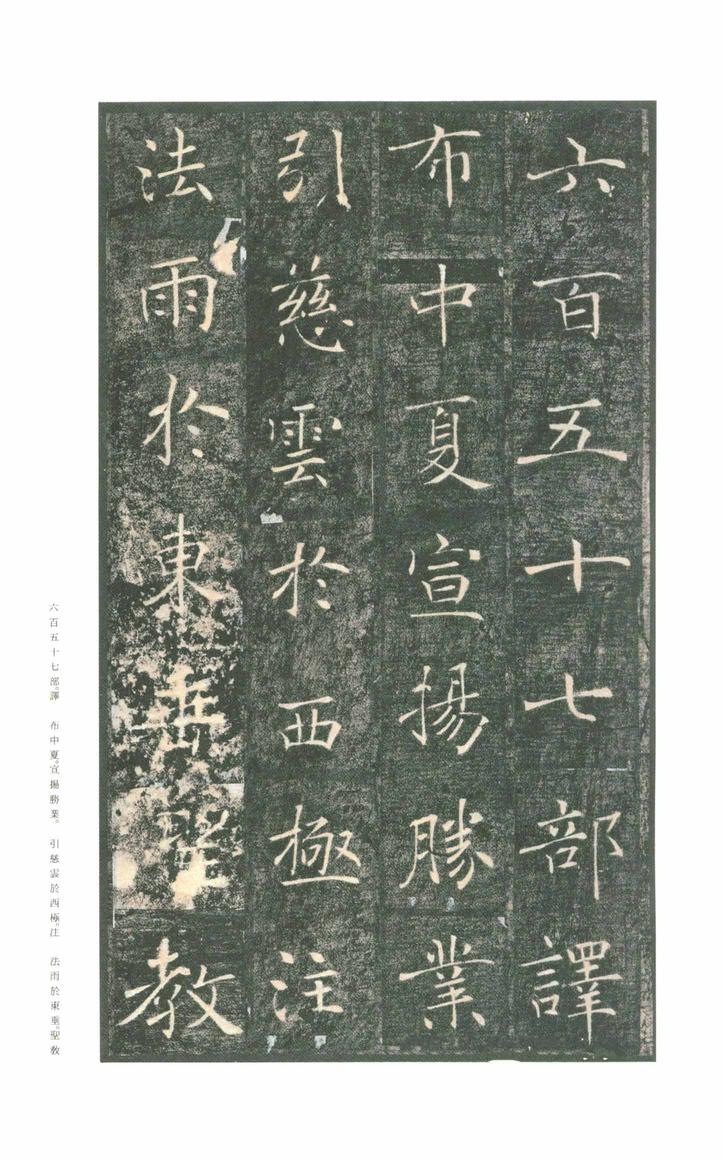 六百五十七部譯
布中夏宣揚勝業
引慈雲於西極注
法雨於東垂聖教
六百五十七部。譯　布中夏。宣揚勝業。　引慈雲於西極。注　法雨於東垂。聖教